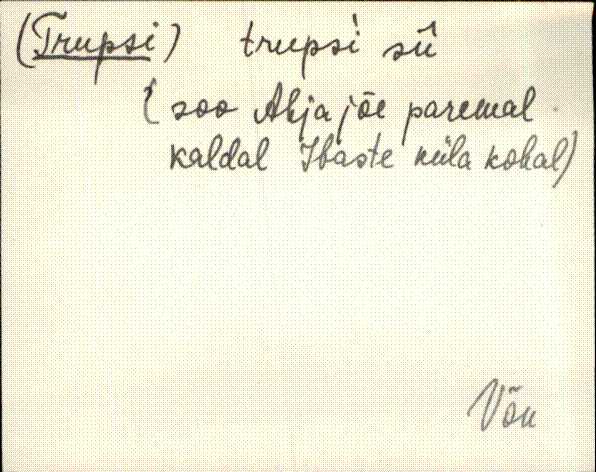 (Trupsi) trupsi sü
(soo Ahja jõe paremal
kaldal Ibaste küla kohal)
Võn